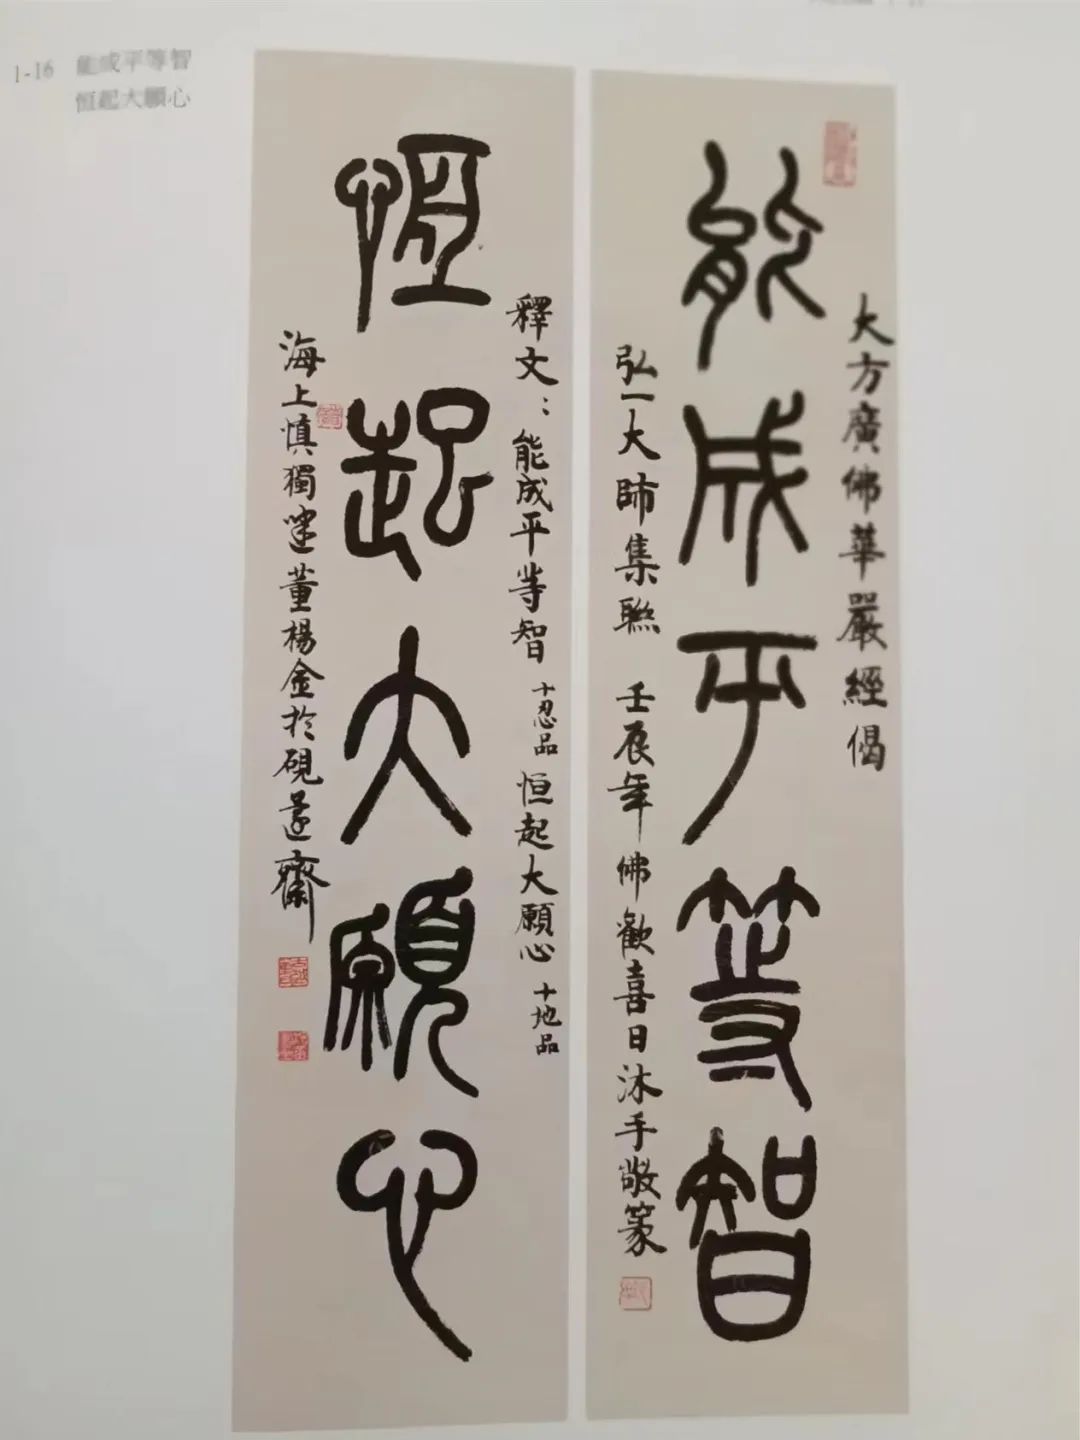 1-16 能成平等智
恒起大願心
大方廣佛華嚴經偈
能成平等智
弘一大師集聯 壬辰年佛歡喜日沐手敬篆
釋文：能成平等智 十忍品 恒起大願心 十地品
恒起大願心
海上慎獨 董楊金於硯 齋